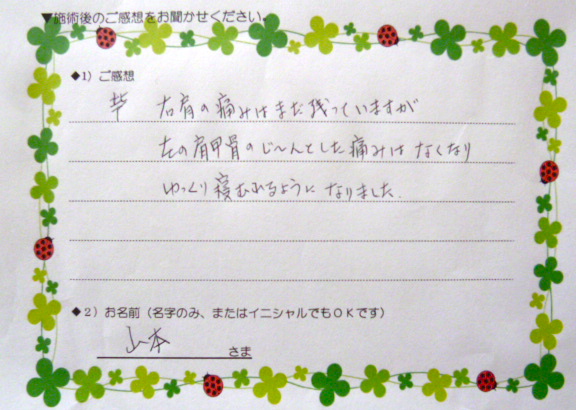 ▼施術後のご感想をお聞かせください。
◆1）ご感想
右肩の痛みはまだ残っていますが
左の肩甲骨のじ～んとした痛みは なくなり
ゆっくり寝むれるように なりました.
◆2）お名前（名字のみ、またはイニシャルでもＯＫです）
山本
さま